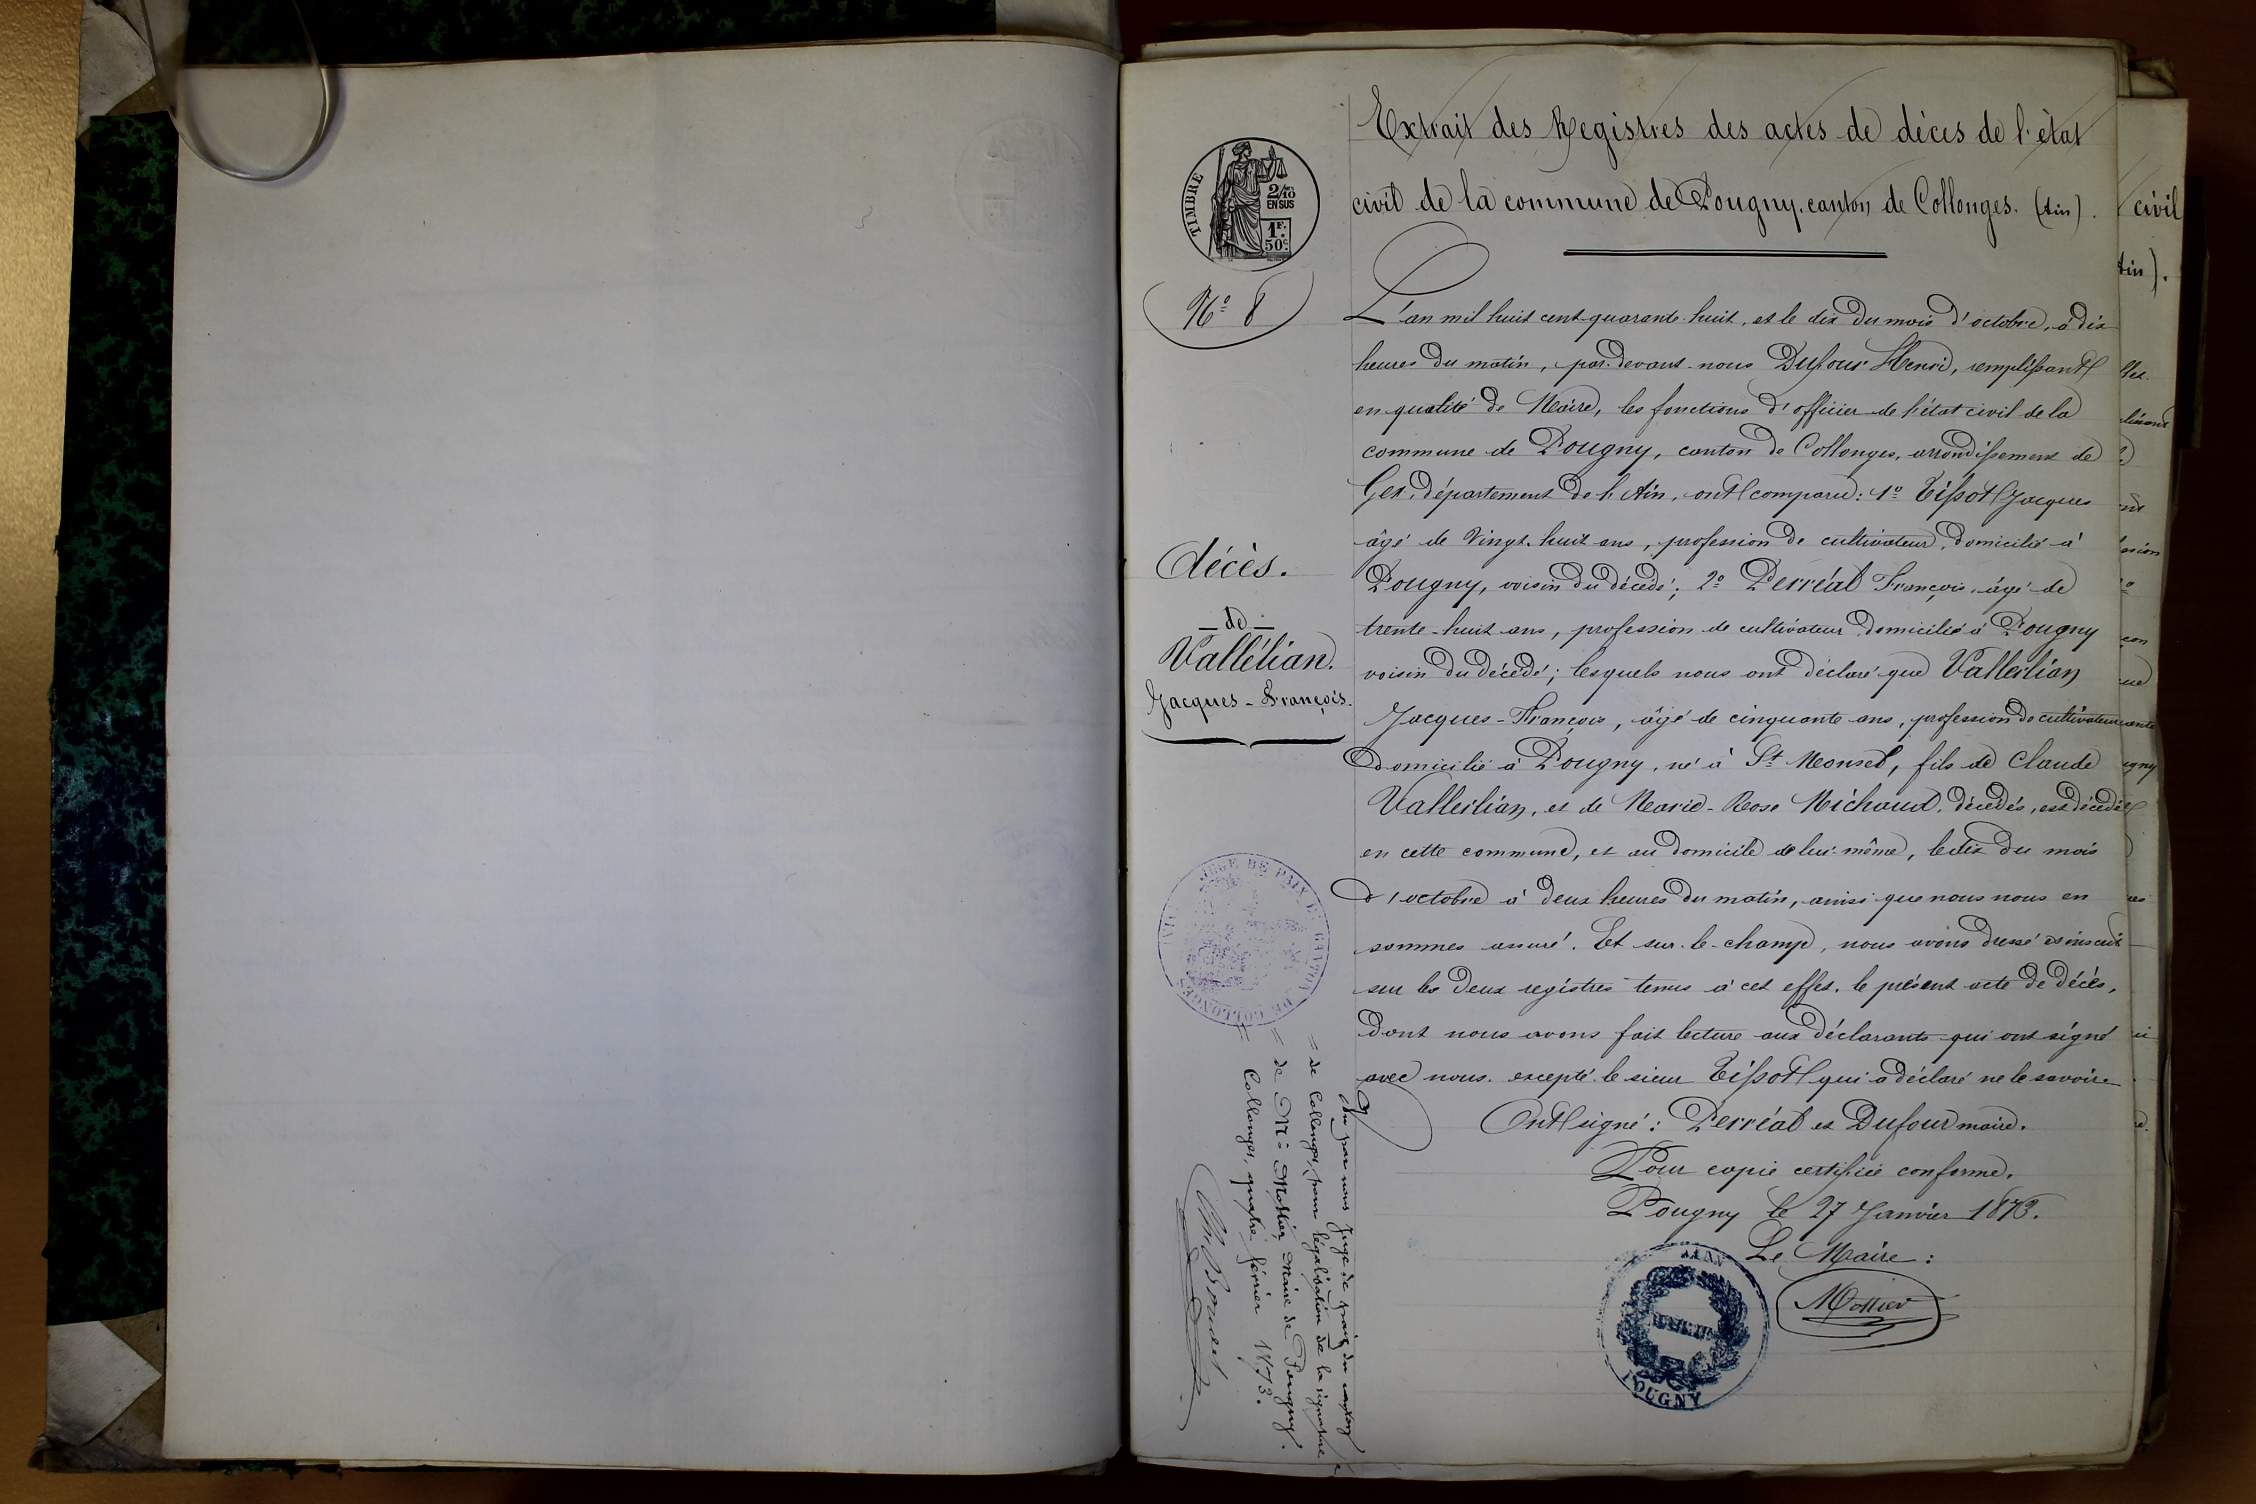 Extrait des Registres des actes de décès de l'état
civil de la commune de Pougny, canton de Collonges. (Ain).
TIMBRE
2/10
EN SUS
1F.
50c.
Nº 8
décès.
de
Vallélian.
Jacques-François.
L'an mil huit cent quarante-huit, et le dix du mois d'octobre, à dix
heures du matin, par-devant-nous Dufour Henri, remplissant
en qualité de Maire, les fonctions d'officier de l'état civil de la
commune de Pougny, canton de Collonges, arrondissement de
Gex, département de l'Ain, ont comparu: 1º Tissot Jacques
âgé de vingt-huit ans, profession de cultivateur, domicilié à
Pougny, voisin du décédé; 2º Perréal François, âgé de
trente-huit ans, profession de cultivateur domicilié à Pougny
voisin du décédé; lesquels nous ont déclaré que Vallerlian
Jacques-François, âgé de cinquante ans, profession de cultivateur
domicilié à Pougny, né à St Monset, fils de Claude
Vallerlian, et de Marie-Rose Michaud, décédés, est décédé
en cette commune, et au domicile de lui-même, le dix du mois
d'octobre à deux heures du matin, ainsi que nous nous en
sommes assuré. Et sur-le-champ, nous avons dressé et inscrit
sur les deux registres tenus à cet effet, le présent acte de décès,
dont nous avons fait lecture aux déclarants qui ont signé
avec nous excepté le sieur Tissot qui a déclaré ne le savoir.
Ont signé: Perréal et Dufour maire.
Pour copie certifiée conforme.
Pougny le 27 Janvier 1873.
Le Maire:
Mottier
POUGNY
JUGE DE PAIX DU CANTON DE COLLONGES
Vu par nous Juge de paix du canton
de Collonges, pour légalisation de la signature
de Mr. Mottier, Maire de Pougny.
Collonges, quatre février 1873.
civil
Ain).